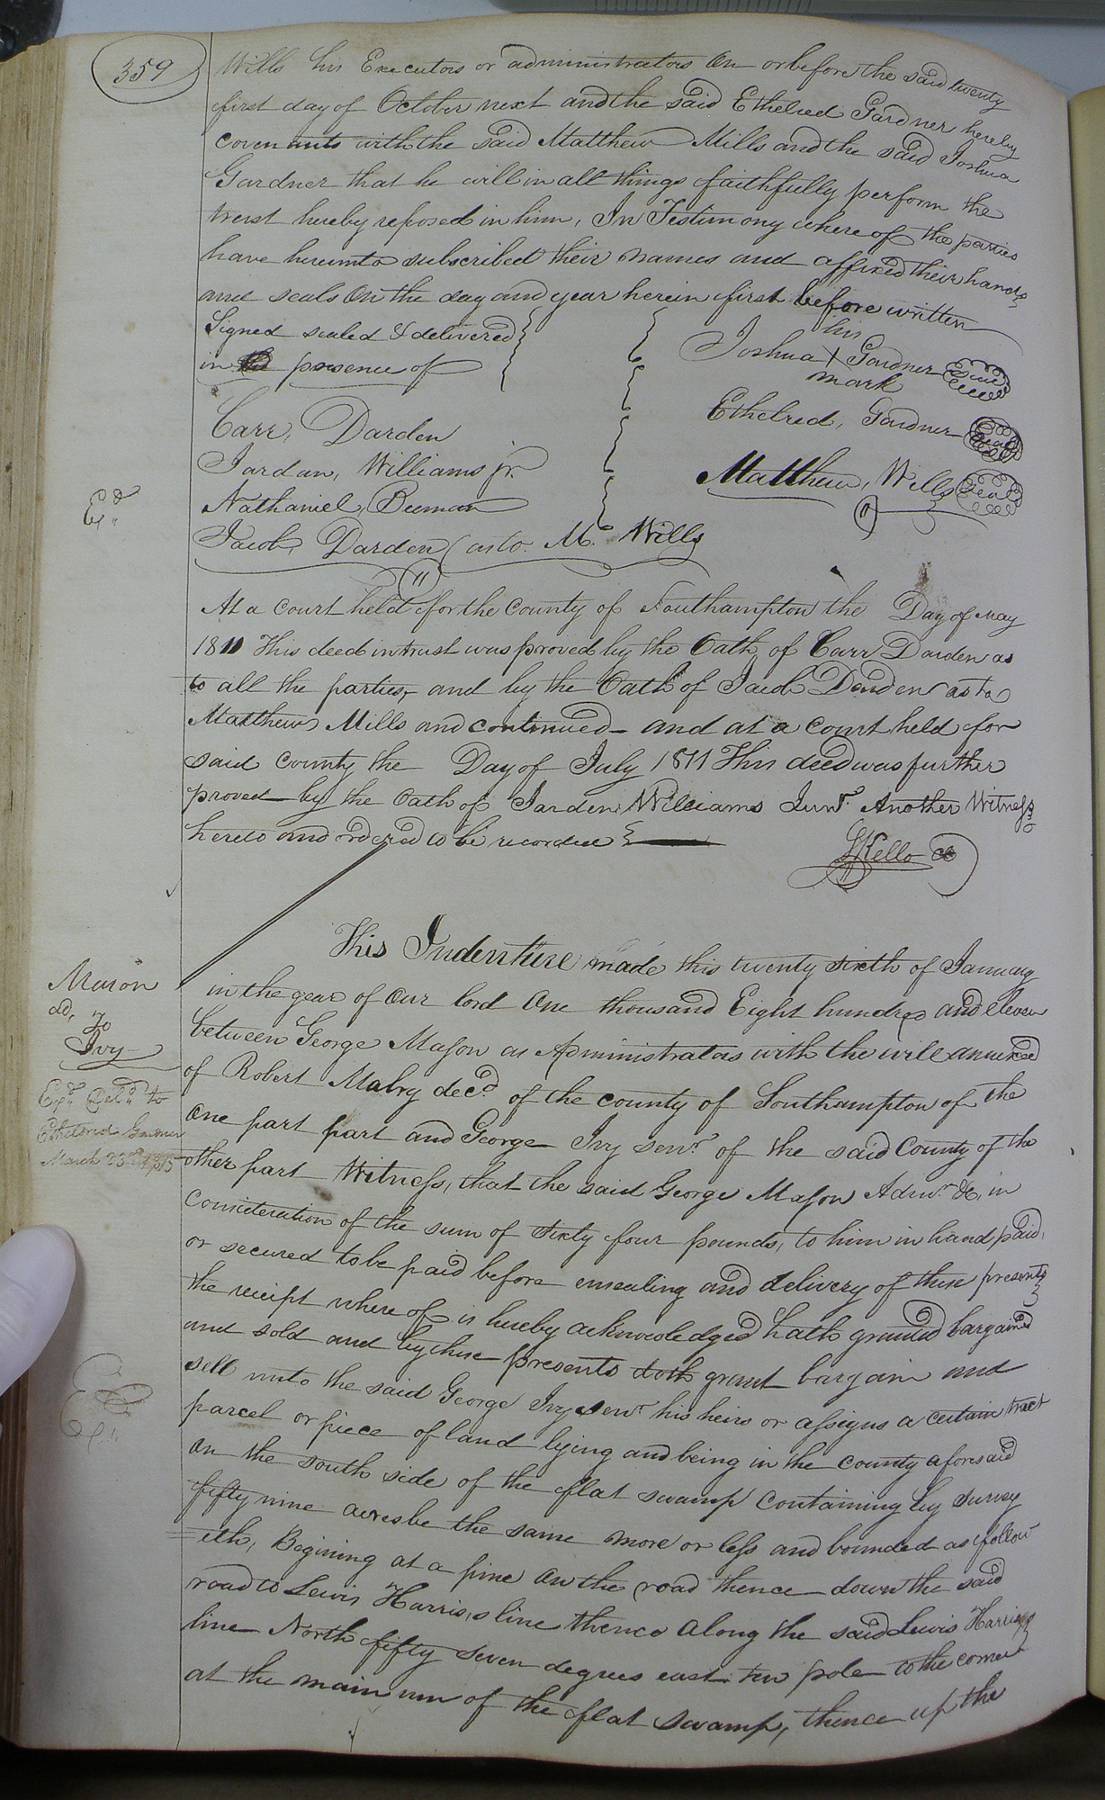 359
Wills his Executors or administrators On or before the said twenty
first day of October next and the said Ethelred Gardner hereby
covenants with the said Matthew Mills and the said Joshua
Gardner that he will in all things faithfully perform the
trust hereby reposed in him, In Testimony where of the parties
have hereunto subscribed their names and affixed their hands
and seals On the day and year herein first before written
Signed sealed & delivered
in the presence of
his
Joshua X Gardner Seal
mark
Ethelred, Gardner Seal
Matthew, Wills Seal
Carr, Darden
Jordan, Williams jr.
Nathaniel, Beeman
Jacob, Darden (as to. M. Wills
Ed
At a court held for the County of Southampton the Day of May
1811 This deed in trust was proved by the Oath of Carr Darden as
to all the parties, and by the Oath of Jacob Darden as to
Matthew Mills and continued - and at a court held for
said County the Day of July 1811 This deed was further
proved by the Oath of Jarden Williams Junr. Another Witness
hereto and ordered to be recorded
SKello CC
Mason
ad,
To
Ivy
Exd. Deld. to
Ethelored Gardner
March 23rd 1815
This Indenture made this twenty sixth of January
in the year of Our lord One thousand Eight hundred and eleven
between George Mason as Administrators with the will annexed
of Robert Mabry decd. of the county of Southampton of the
one part part and George Ivy senr. of the said County of the
other part Witness, that the said George Mason Admr. &c, in
Consideration of the sum of Sixty four pounds, to him in hand paid,
or secured to be paid before ensealing and delivery of these presents
the reciept where of is hereby acknowledged hath granted bargained
and sold and by these presents doth grant bargain and
sell unto the said George Ivy senr. his heirs or assigns a certain tract
parcel or piece of land lying and being in the county aforesaid
on the south side of the flat swamp containing by survey
fifty nine acres be the same more or less and bounded as follow
=eth, Begining at a pine on the road thence down the said
road to Lewis Harris,s line thence along the said Lewis Harris,s
line North fifty seven degrees east ten pole to the corner
at the main run of the flat swamp, thence up the